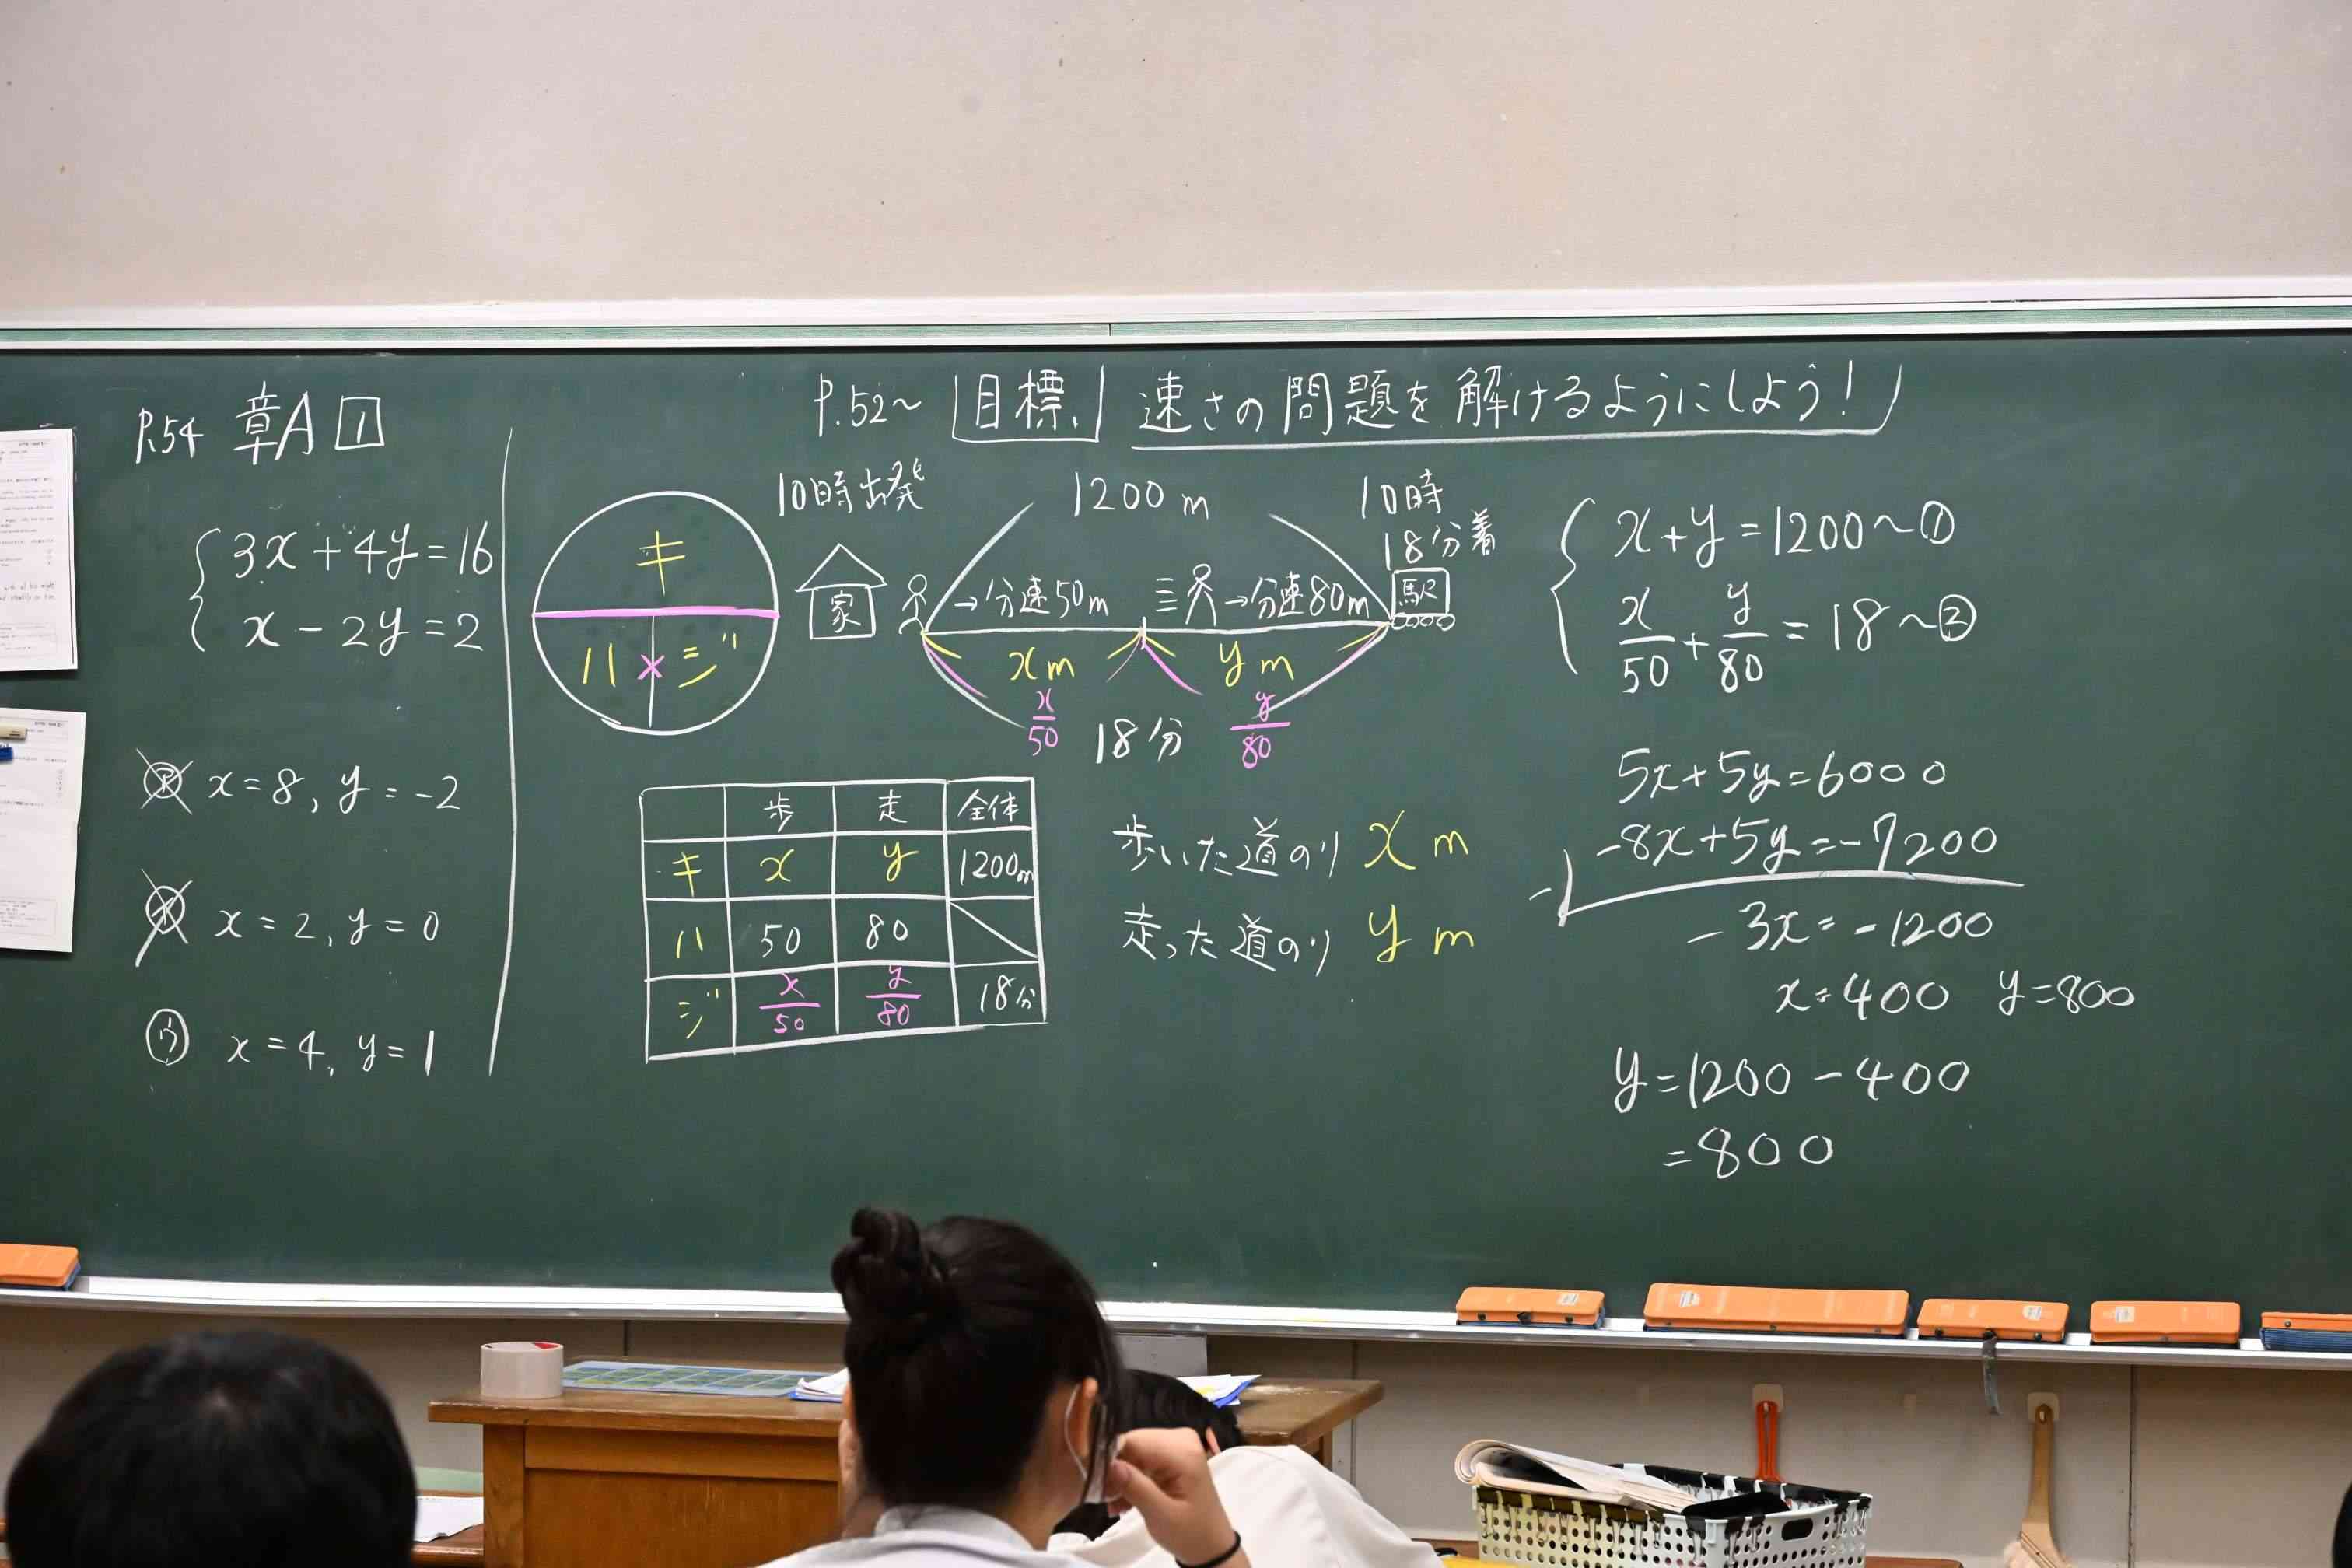 P.54 章A 1
3x+4y=16
x-2y=2
x=8, y=-2
x=2, y=0
ウ x=4, y=1
P.52~ 目標 速さの問題を解けるようにしよう!
キ
ハ×ジ
10時出発
1200m
10時
18分着
家
→分速50m
→分速80m
駅
xm
ym
x/50
18分
y/80
歩 走 全体
キ x y 1200m
ハ 50 80
ジ x/50 y/80 18分
歩いた道のり xm
走った道のり ym
x+y=1200~①
x/50+y/80=18~②
5x+5y=6000
-8x+5y=-7200
-3x=-1200
x=400 y=800
y=1200-400
=800